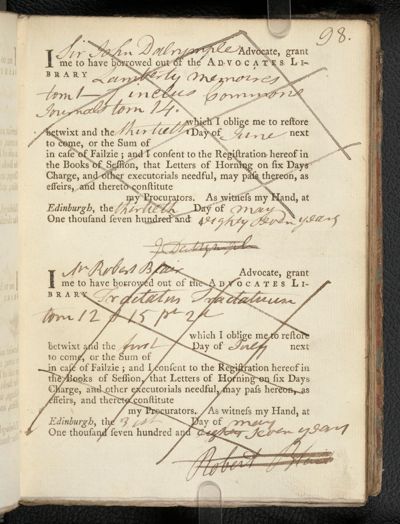 98.
I Sir John Dalrymple Advocate, grant
me to have borrowed out of the ADVOCATES LI-
BRARY Lamberty memoires
tom 1 inclus Commons
Journals tom 14.
which I oblige me to reſtore
betwixt and the thirtieth Day of June next
to come, or the Sum of
in caſe of Failzie ; and I conſent to the Regiſtration hereof in
the Books of Seſſion, that Letters of Horning on ſix Days
Charge, and other executorials needful, may paſs thereon, as
effeirs, and thereto conſtitute
my Procurators. As witneſs my Hand, at
Edinburgh, the thirtieth Day of may
One thouſand ſeven hundred and eighty Seven years
J Dalrymple
I Mr Robert Blair Advocate, grant
me to have borrowed out of the ADVOCATES LI-
BRARY Tractatus Tractatuum
tom 12 & 15 pt 2d
which I oblige me to reſtore
betwixt and the first Day of July next
to come, or the Sum of
in caſe of Failzie ; and I conſent to the Regiſtration hereof in
the Books of Seſſion, that Letters of Horning on ſix Days
Charge, and other executorials needful, may paſs hereon, as
effeirs, and thereto conſtitute
my Procurators. As witneſs my Hand, at
Edinburgh, the 31st Day of may
One thouſand ſeven hundred and Seven years
Robert Blair